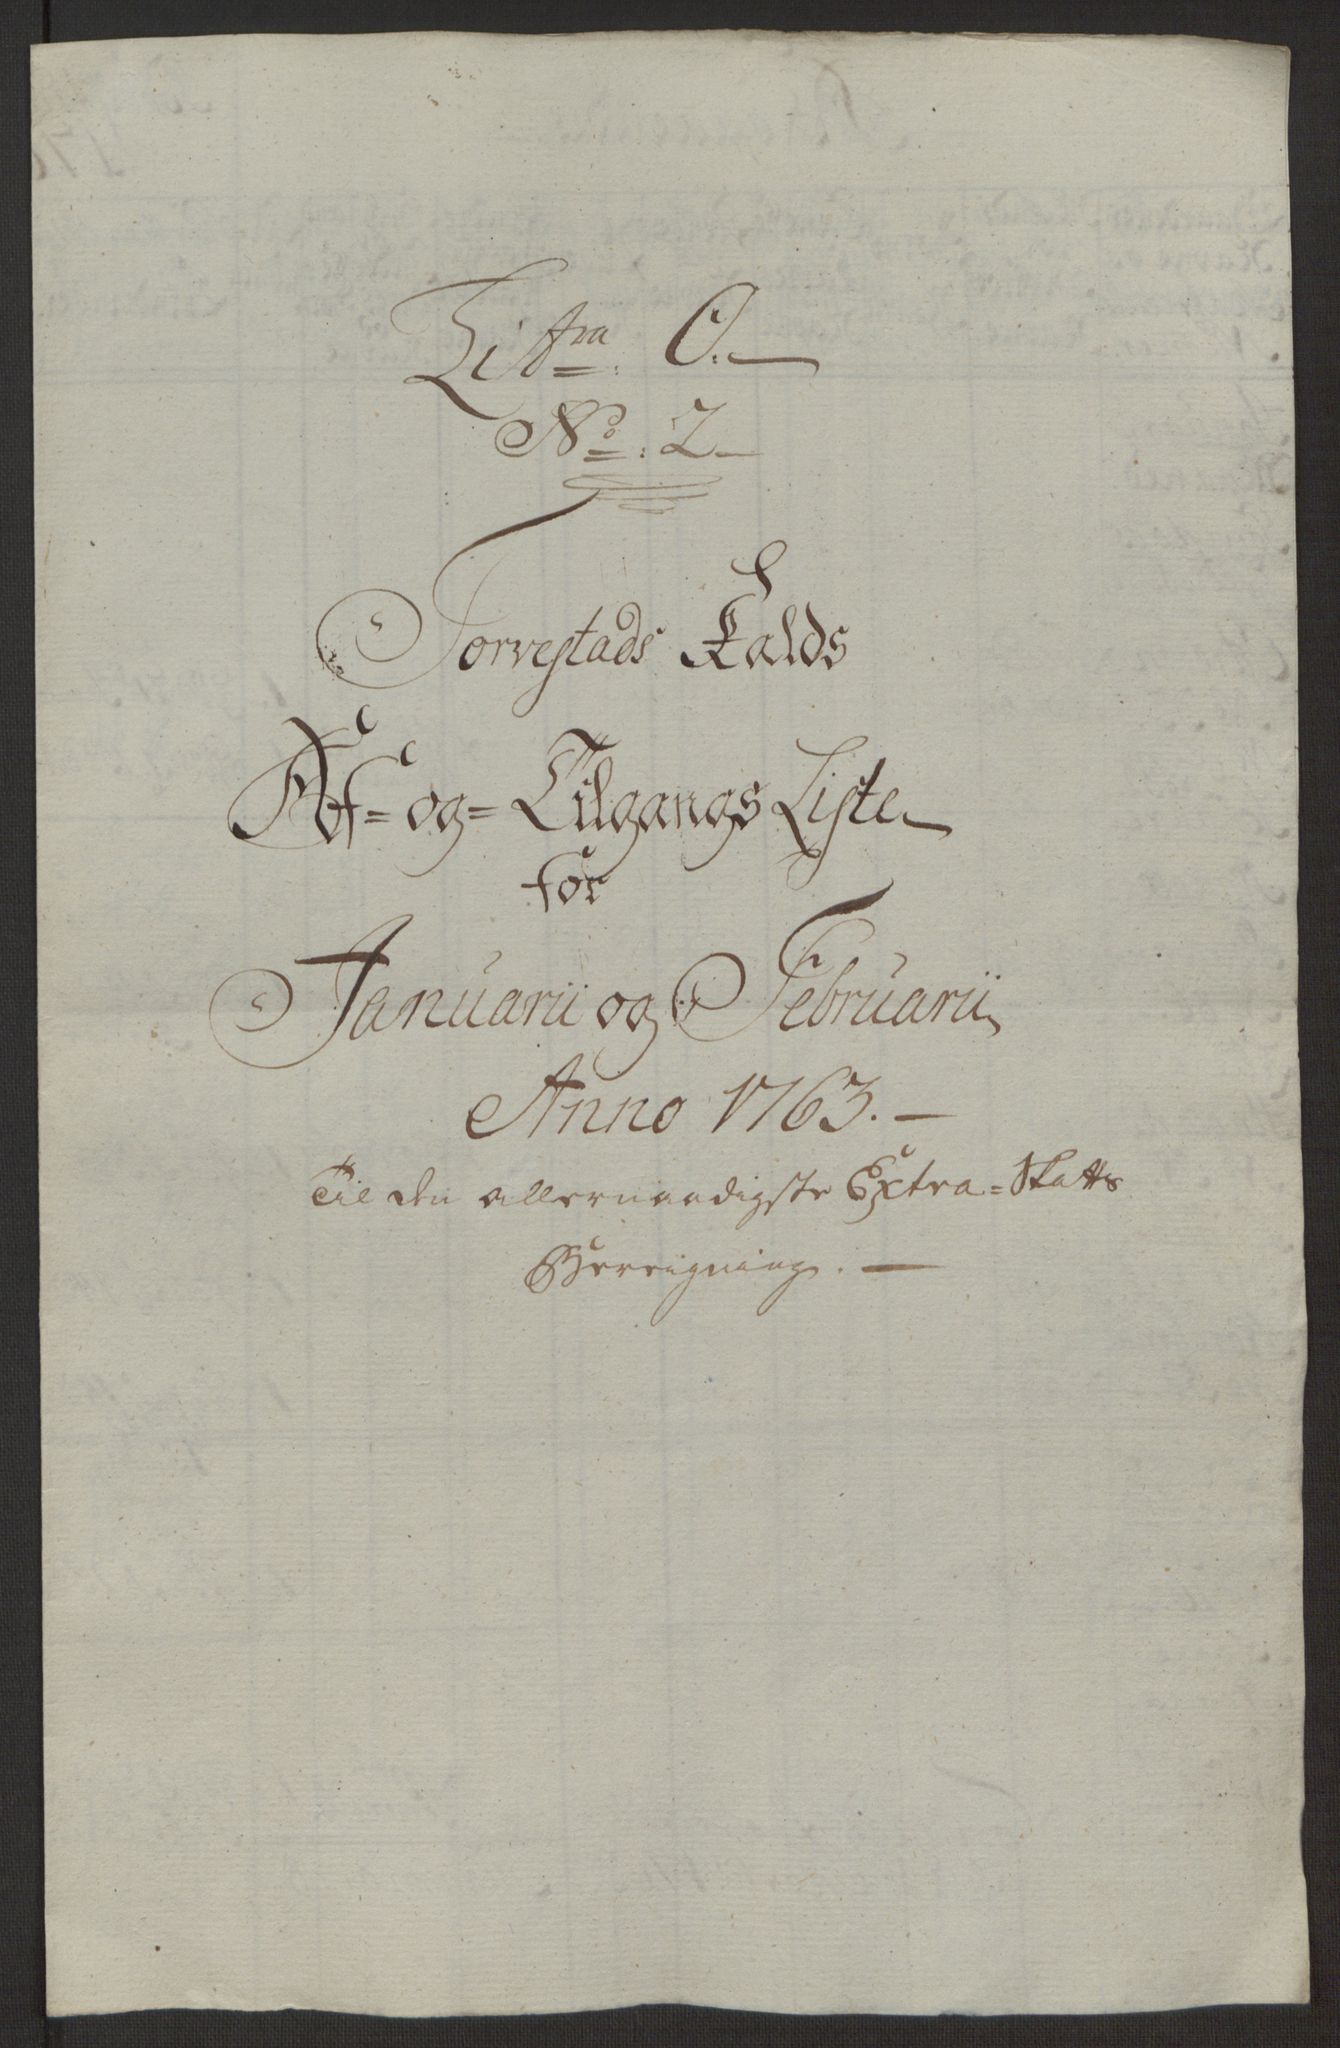 Littra: O.
No: 2
Torvestads Kalds
Af- og- Tilgangs Liste
for
Januarii og Februarii
Anno 1763.
Til den allernaadigste Extra-Skatts
Bereigning.